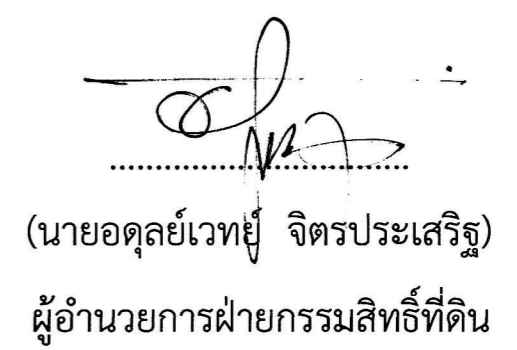 (นายอดุลย์เวทย์ จิตรประเสริฐ)
ผู้อำนวยการฝ่ายกรรมสิทธิ์ที่ดิน